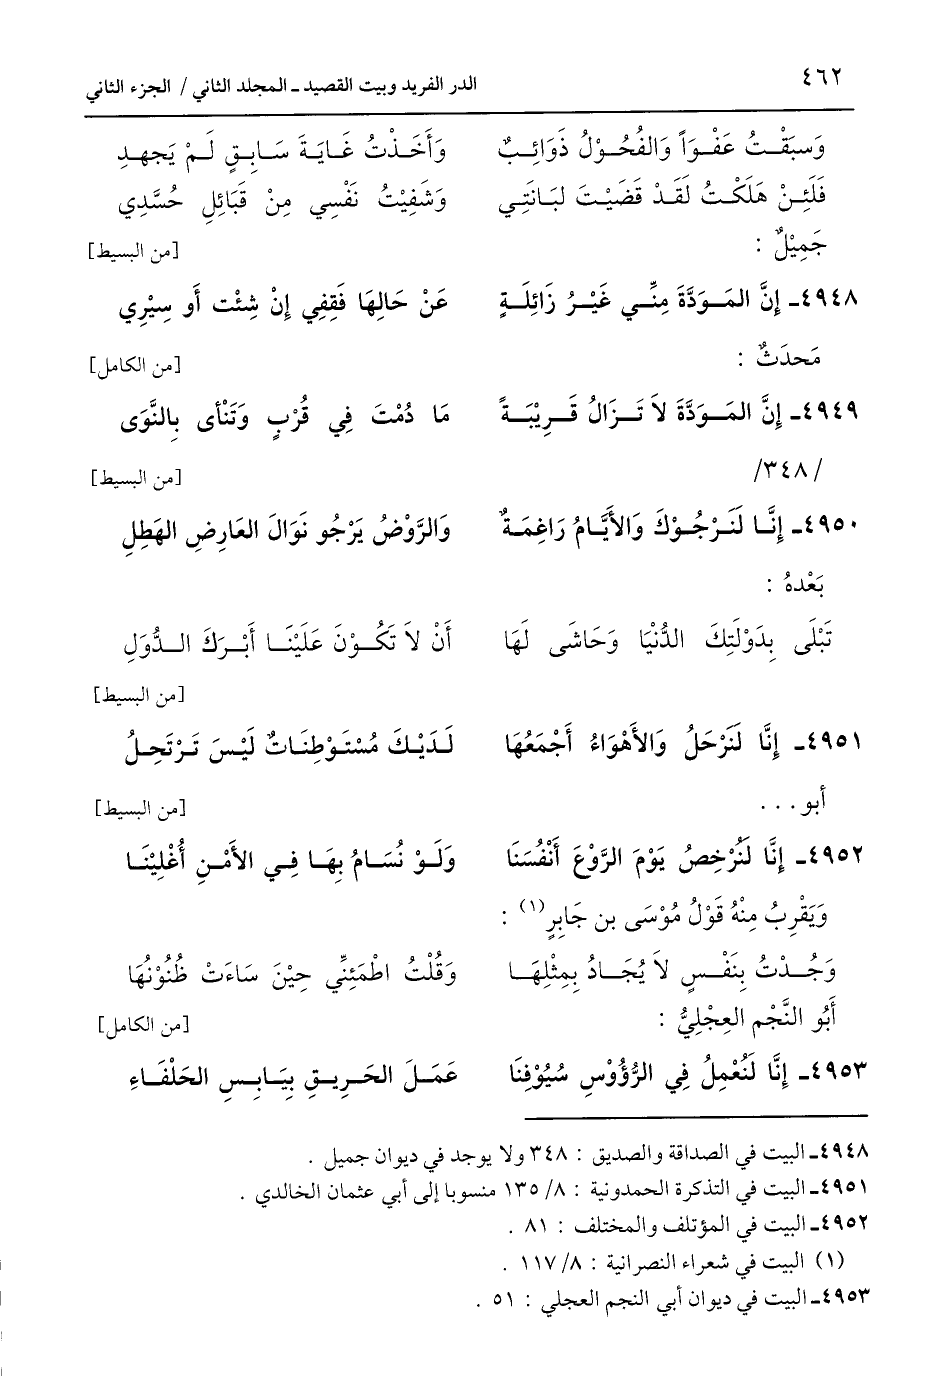 ٤٦٢ الدر الفريد وبيت القصيد ـ المجلد الثاني / الجزء الثاني
وَسبَقْـتُ عَفْـوَاً وَالفُحُـوْلُ ذَوَائِـبٌ وَأَخَـذْتُ غَـايَةَ سَـابِـقٍ لَـمْ يَجهـدِ
فَلَئِـنْ هَلَكْـتُ لَقَـدْ قَضَيْـتَ لبَـانَتِـي وَشَفِيْتُ نَفْسِي مِنْ قَبَائِلِ حُسَّدِي
جَمِيْلٌ : [من البسيط]
٤٩٤٨ـ إِنَّ المَـوَدَّةَ مِنِّـي غَيْـرُ زَائِلَـةٍ عَنْ حَالِهَا فَقِفِي إِنْ شِئْت أَو سِيْرِي
مَحدَثٌ : [من الكامل]
٤٩٤٩ـ إِنَّ المَـوَدَّةَ لاَ تَـزَالُ قَـرِيْبَـةً مَا دُمْتَ فِي قُرْبٍ وَتَنْأى بِالنَّوَى
/٣٤٨/ [من البسيط]
٤٩٥٠ـ إِنَّـا لَنَـرْجُـوْكَ وَالأيَّـامُ رَاغِمَـةٌ وَالرَّوْضُ يَرْجُو نَوَالَ العَارِضِ الهَطِلِ
بَعْدهُ :
تَبْلَى بِدَوْلَتِكَ الدُّنْيَا وَحَاشَى لَهَا أَنْ لاَ تَكُـوْنَ عَلَيْنَـا أَبْـرَكَ الـدُّوَلِ
[من البسيط]
٤٩٥١ـ إِنَّا لَنَرْحَلُ وَالأَهْوَاءُ أَجْمَعُهَا لَـدَيْـكَ مُسْتَـوْطِنَـاتٌ لَيْـسَ تَـرْتَحِـلُ
أبو . . . [من البسيط]
٤٩٥٢ـ إِنَّا لَنُرْخِصُ يَوْمَ الرَّوْعَ أَنْفُسَنَا وَلَـوْ نُسَـامُ بِهَـا فِـي الأَمْـنِ أُغْلِيْنَـا
وَيَقْرِبُ مِنْهُ قَوْلُ مُوْسَى بن جَابِرٍ(١) :
وَجُـدْتُ بِنَفْـسٍ لاَ يُجَـادُ بِمِثْلِهَـا وَقُلْتُ اطْمَئِنِّي حِيْنَ سَاءَتْ ظُنُوْنُهَا
أَبُو النَّجْم العِجْلِيُّ : [من الكامل]
٤٩٥٣ـ إِنَّا لَنُعْمِلُ فِي الرُّؤُوْسِ سُيُوْفَنَا عَمَـلَ الحَـرِيـقِ بِيَـابِـسِ الحَلْفَـاءِ
٤٩٤٨ـ البيت في الصداقة والصديق : ٣٤٨ ولا يوجد في ديوان جميل .
٤٩٥١ـ البيت في التذكرة الحمدونية : ٨/ ١٣٥ منسوبا إلى أبي عثمان الخالدي .
٤٩٥٢ـ البيت في المؤتلف والمختلف : ٨١ .
(١) البيت في شعراء النصرانية : ٨/ ١١٧ .
٤٩٥٣ـ البيت في ديوان أبي النجم العجلي : ٥١ .